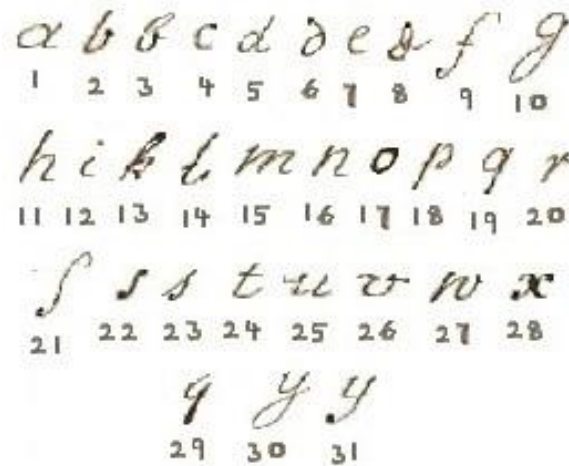 a b b c d d e & f g
1 2 3 4 5 6 7 8 9 10
h i k l m n o p q r
11 12 13 14 15 16 17 18 19 20
ſ s s t u v w x
21 22 23 24 25 26 27 28
y y
29 30 31